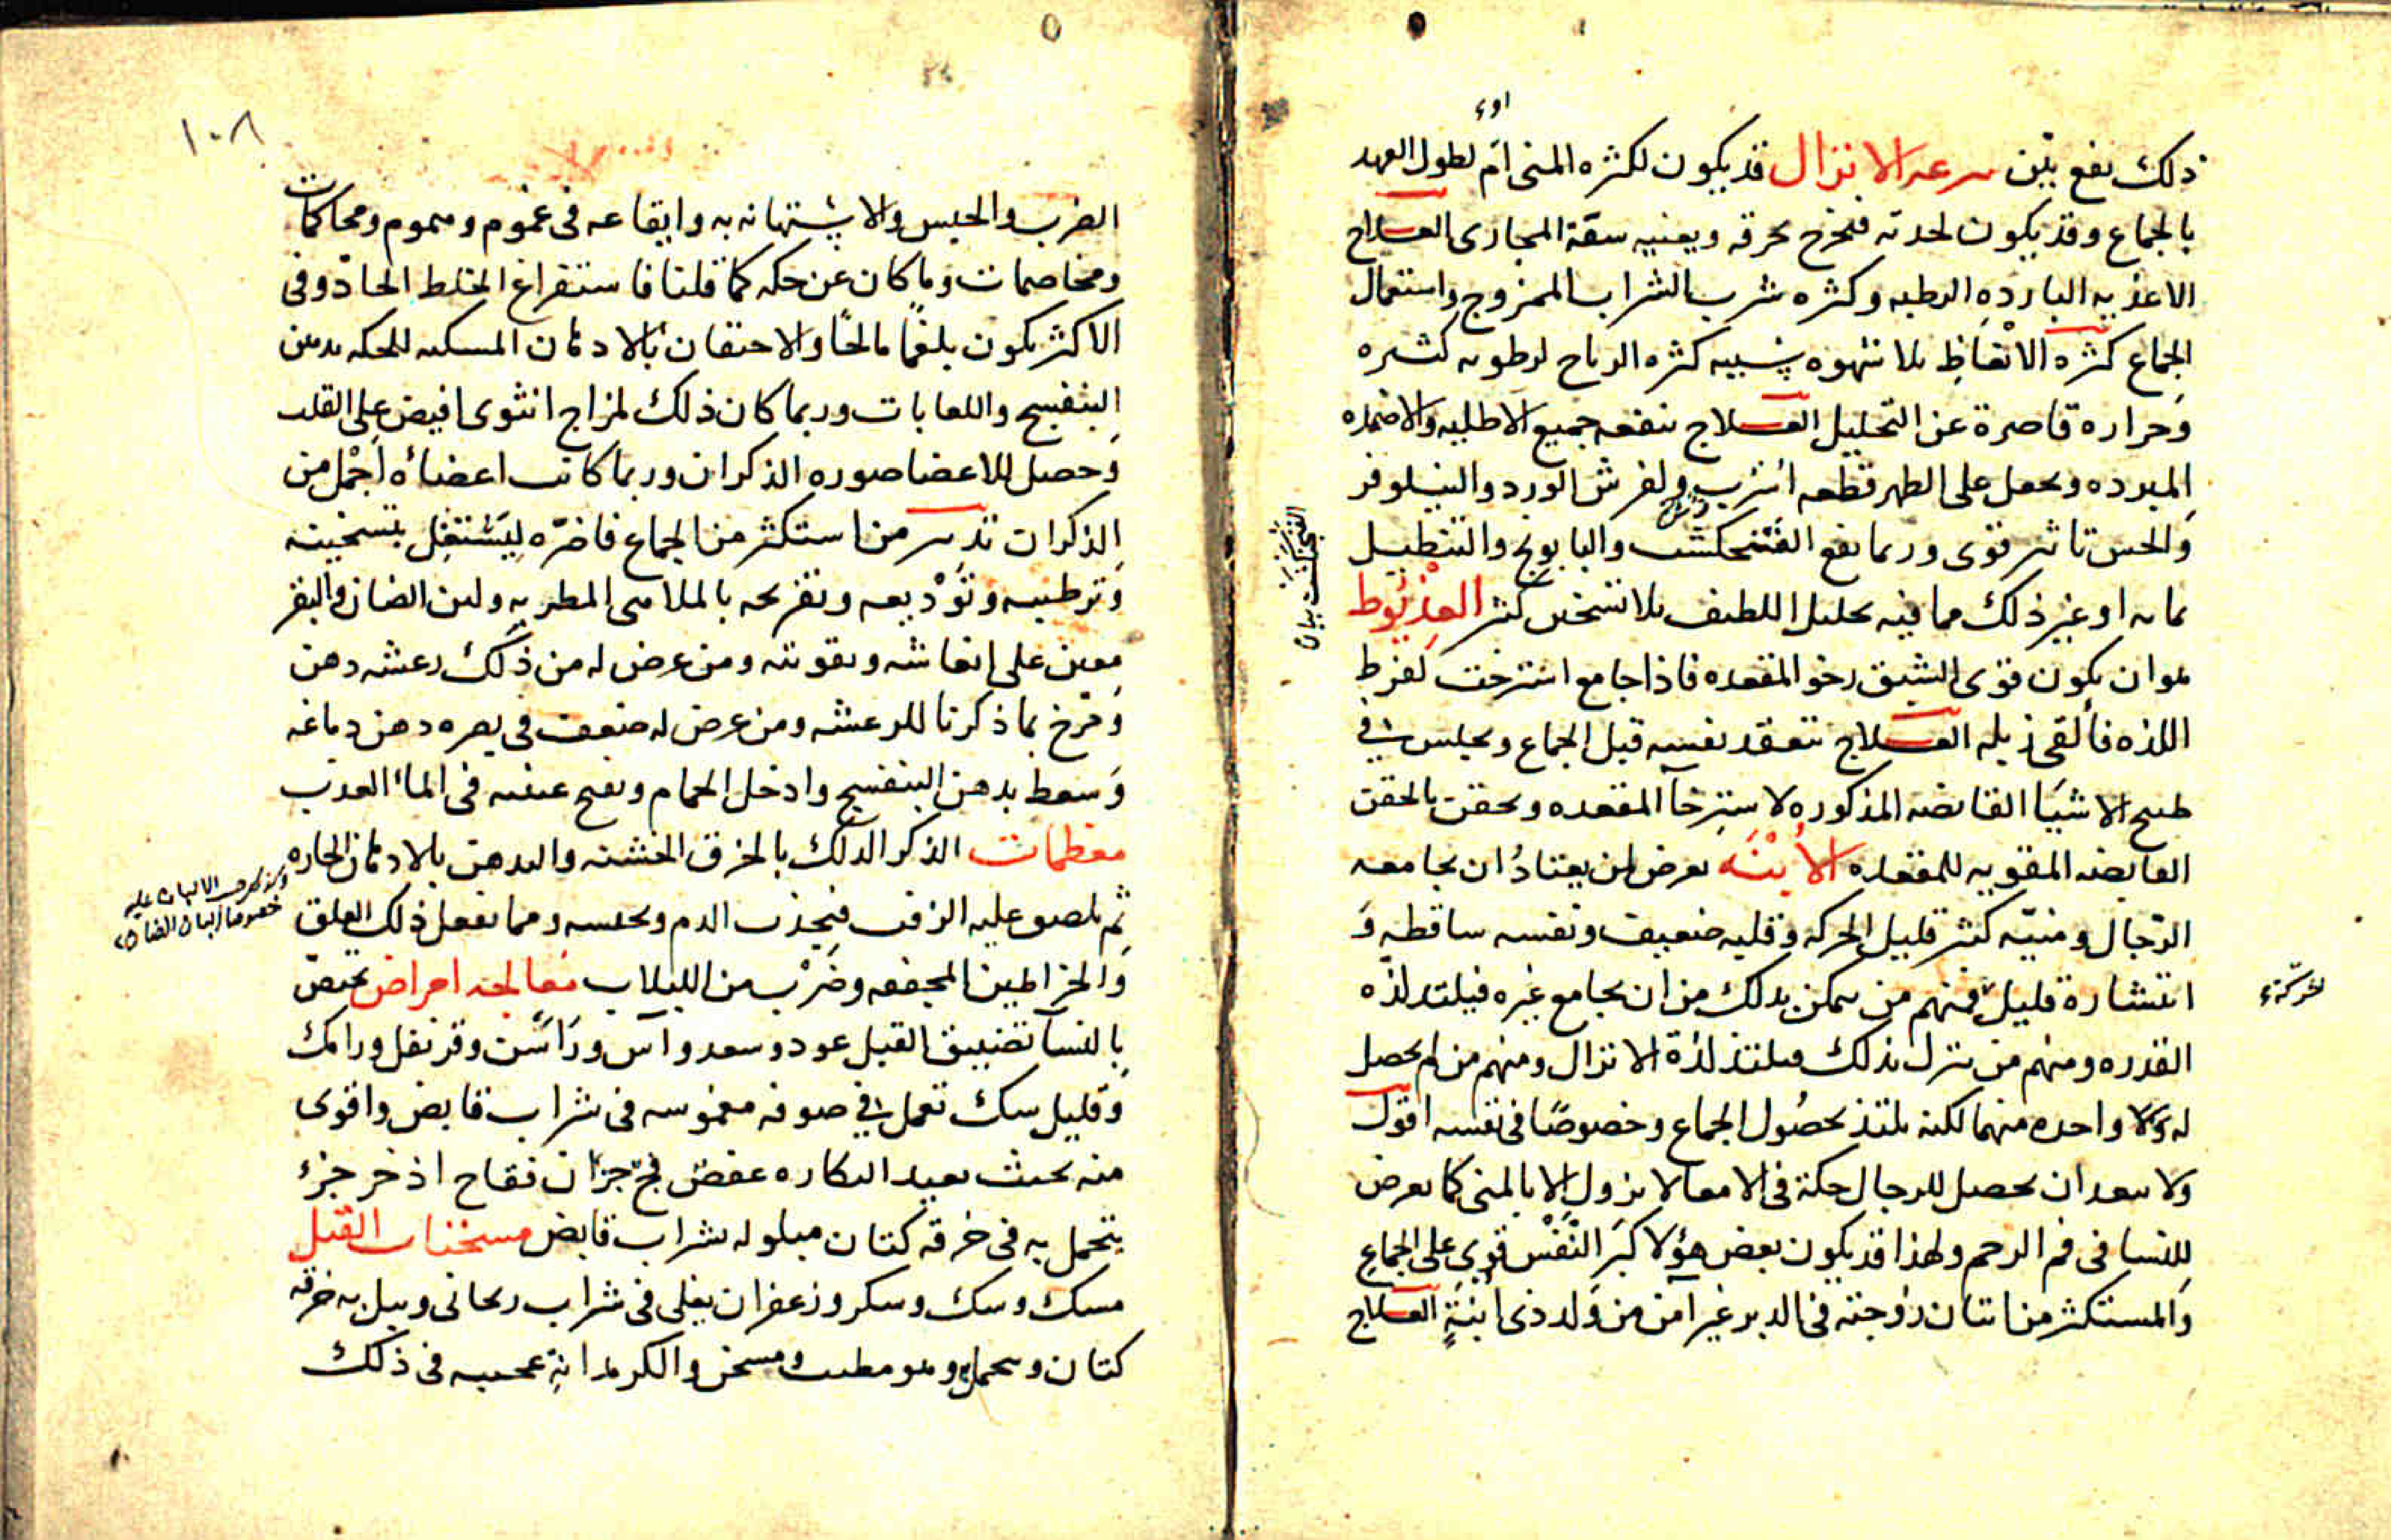 اوء
ذلك نفع بيّن سرعه الانزال قد يكون لكثره المنى اَم لطول العهد
بالجماع وقد يكون لحدته فيخرج بحرقه ويعينه سعّة المجارى العلاج
الاغذيه البارده الرطبه وكثره شرب الشراب الممزوج واستعمال
الجماع كثره الانعاظِ بلا شهوه سببه كثره الرياح لرطوبه كثيره
وحراره قاصرة عن التحليل العلاج ينفعه جميع الاطليه والاضمده
المبرده ويجعل على الظهر قطعه اسرب ولفرش الورد والنيلوفر
والخس تاثير قوى وربما نفع الفنجنكشت والبابونج والتنطيل
بمائه او غير ذلك مما فيه تحليل اللطيف بلا تسخين كثير العِذْيُوط
هو ان يكون قوى الشبق رخو المقعده فاذا جامع استرخت لفرط
اللذه فألقى زبله العلاج يتفقد نفسه قبل الجماع ويجلس فى
طبيخ الاشيَا القابضه المذكوره لاسترخآ المقعده ويحقن بالحقن
القابضه المقويه للمقعده الاُبْنَه يعرض لمن يعتادُ ان يجامعه
الرّجال ومنيّه كثير قليل الحركه وقلبه ضعيف ونفسه ساقطه وَ
انتشاره قليل فمنهم من يمكن بذلك من ان يجامع غيره فيلتذ لذّه
القدره ومنهم من ينزل بذلك فيلتذ لذّة الانزال ومنهم من لم يحصل
له ولا واحده منهما لكنه يلتذ بحصُول الجماع وخصوصًا فى نفسه اقول
ولا يبعد ان يحصل للرجال حكة فى الامعا لا يزول الا بالمنى كما يعرض
للنسا فى فم الرحم ولهذا قد يكون بعض هؤلا كبَر النَّفْس قوى على الجماع
والمستكثر من اتيان زوجته فى الدبر غير آمن من وَلد ذى اُبنَةٍ العلاج
الفنجنكشت بيان
١٠٨
الضرب والحبس والاشتهانه به وايقاعه فى غموم وهموم ومحاكمات
ومخاصمات وما كان عن حكه كما قلنا فاستفراغ الخلط الحادّ وفى
الاكثر يكون بلغمًا مالحًا والاحتقان بالادهان المسكنه للحكه بدهن
البنفسج واللعابات وربما كان ذلك لمزاج انثوى افيض على القلب
وحصل للاعضا صوره الذكران وربما كانت اعضاؤه اجْمل من
الذكران تدبير من استكثر من الجماع فاضرّه ليَشتغِل بتسخينه
وترطيبه وتَوْديعه وتفريحه بالملاهى المطربه ولبن الضان والبقر
معين على انعاشه وتقويته ومن عرض له من ذلك رعشه دهن
وَمَرخ بما ذكرنا للرعشه ومن عرض له ضعف فى بصره دهن دماغه
وَسعط بدهن البنفسج وادخل الحمام وفتح عينيه فى المآ العذب
معظمات الذكر الدلك بالخرق الخشنه والتدهين بالادهان الحاره
ثم يلصق عليه الزفت فيجذب الدم ويحبسه ومما يفعل ذلك العلق
وَالخراطين المجففه وضَرْب من اللبلاب معالجه امراض تختصّ
بالنسآ تضييق القبل عود وسعد وآس ورَاسَن وقرنفل ورامك
وقليل سك تعمل فى صوفه مغموسه فى شراب قابض واقوى
منه بحيث يعيد البكاره عفص فِجّ جزآن فقاح اذخر جزء
يتحمل به فى خرقه كتان مبلوله بشراب قابض مسخنات القبل
مسك وسك وسكر وزعفران يغلى فى شراب ريحانى ويبل به خرقه
كتان ويتحمل وهو مطيب ومسخن والكرمدانة عجيبه فى ذلك
الالبان عليه
خصوصا البان الضان